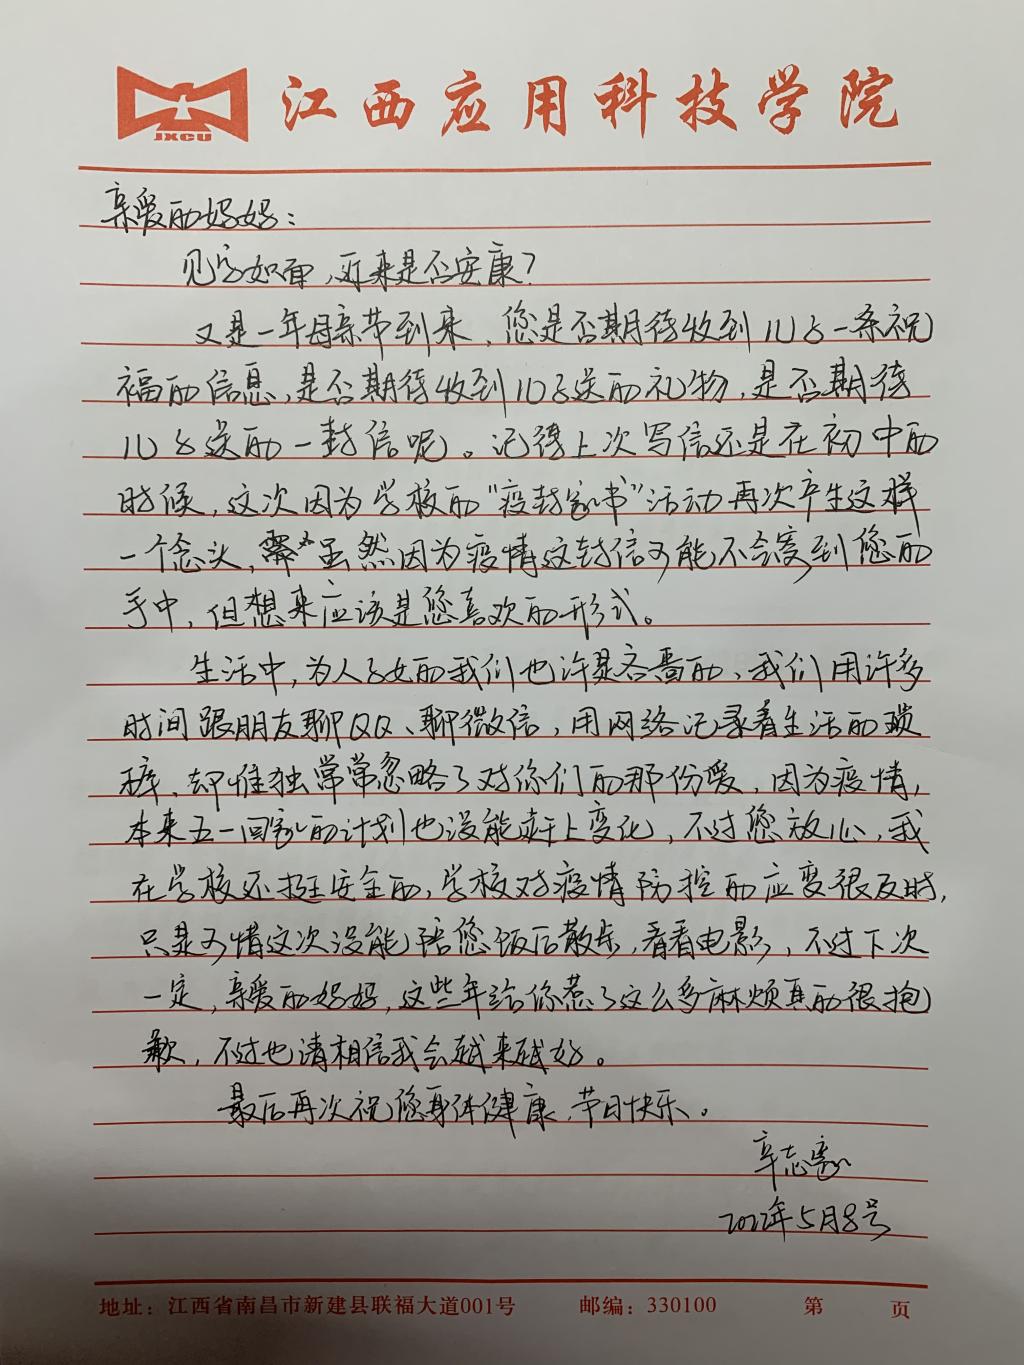 JXCU
江西应用科技学院
亲爱的妈妈：
见字如面，近来是否安康？
又是一年母亲节到来，您是否期待收到儿子一条祝
福的信息，是否期待收到儿子送的礼物，是否期待
儿子送的一封信呢。记得上次写信还是在初中的
时候，这次因为学校的“疫封家书”活动再次产生这样
一个念头，虽然因为疫情这封信可能不会寄到您的
手中，但想来应该是您喜欢的形式。
生活中，为人子女的我们也许是吝啬的，我们用许多
时间跟朋友聊QQ、聊微信，用网络记录着生活的琐
碎，却惟独常常忽略了对你们的那份爱，因为疫情，
本来五一回家的计划也没能赶上变化，不过您放心，我
在学校还挺安全的，学校对疫情防控的应变很及时，
只是可惜这次没能陪您饭后散步，看看电影，不过下次
一定，亲爱的妈妈，这些年给你惹了这么多麻烦真的很抱
歉，不过也请相信我会越来越好。
最后再次祝您身体健康，节日快乐。
辛志
2022年5月8号
地址：江西省南昌市新建县联福大道001号 邮编：330100 第 页